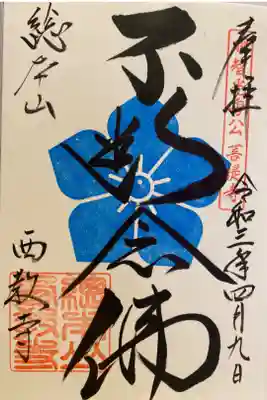 奉拝
明智光秀公 菩提寺
令和三年四月九日
不断念佛
総本山
西教寺